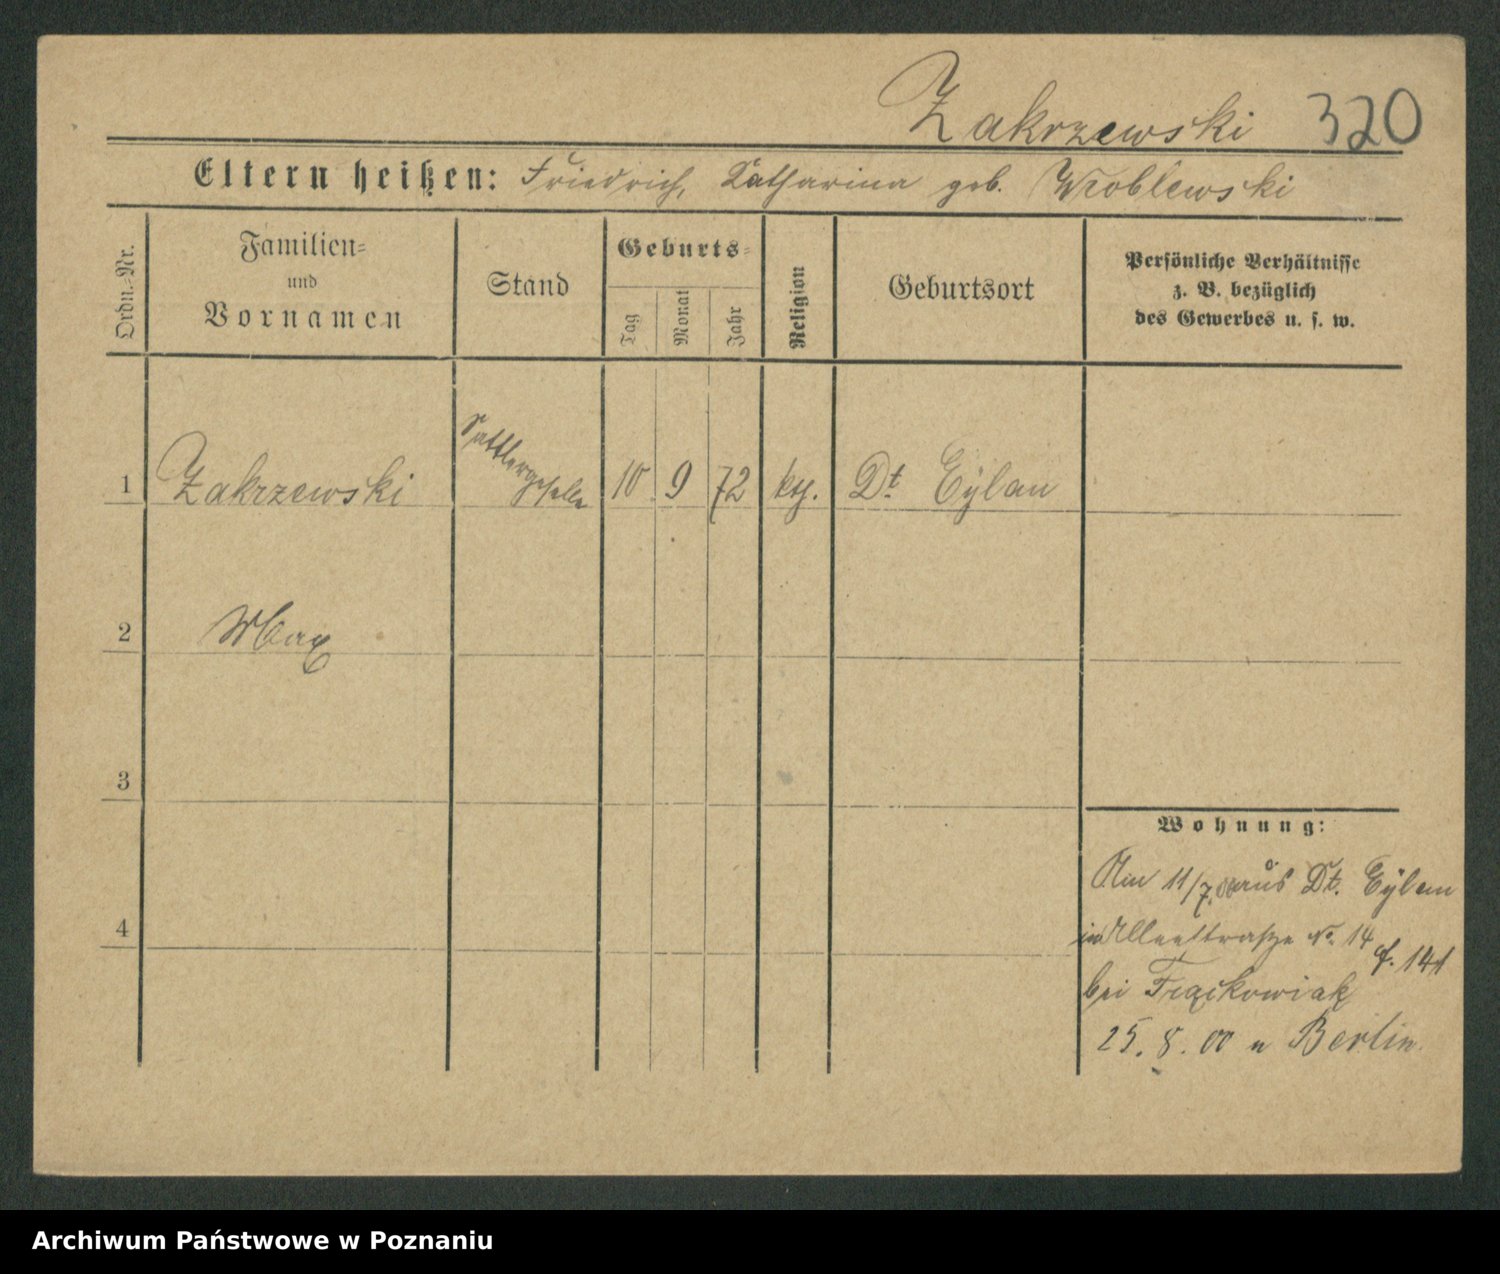 Zakrzewski 320
Eltern heißen: Friedrich, Katharina geb. Wroblewski
Ordn.-Nr.
Familien-
und
Vornamen
Stand
Geburts-
Tag
Monat
Jahr
Religion
Geburtsort
Persönliche Verhältnisse
z. B. bezüglich
des Gewerbes u. s. w.
1 Zakrzewski Sattlergeselle 10 9 72 kth. Dt. Eylau
2 Max
3
4
Wohnung:
Am 11/7.00 aus Dt. Eylau
in No. 14
f. 141
bei Frąckowiak
25. 8. 00 n Berlin.
Archiwum Państwowe w Poznaniu